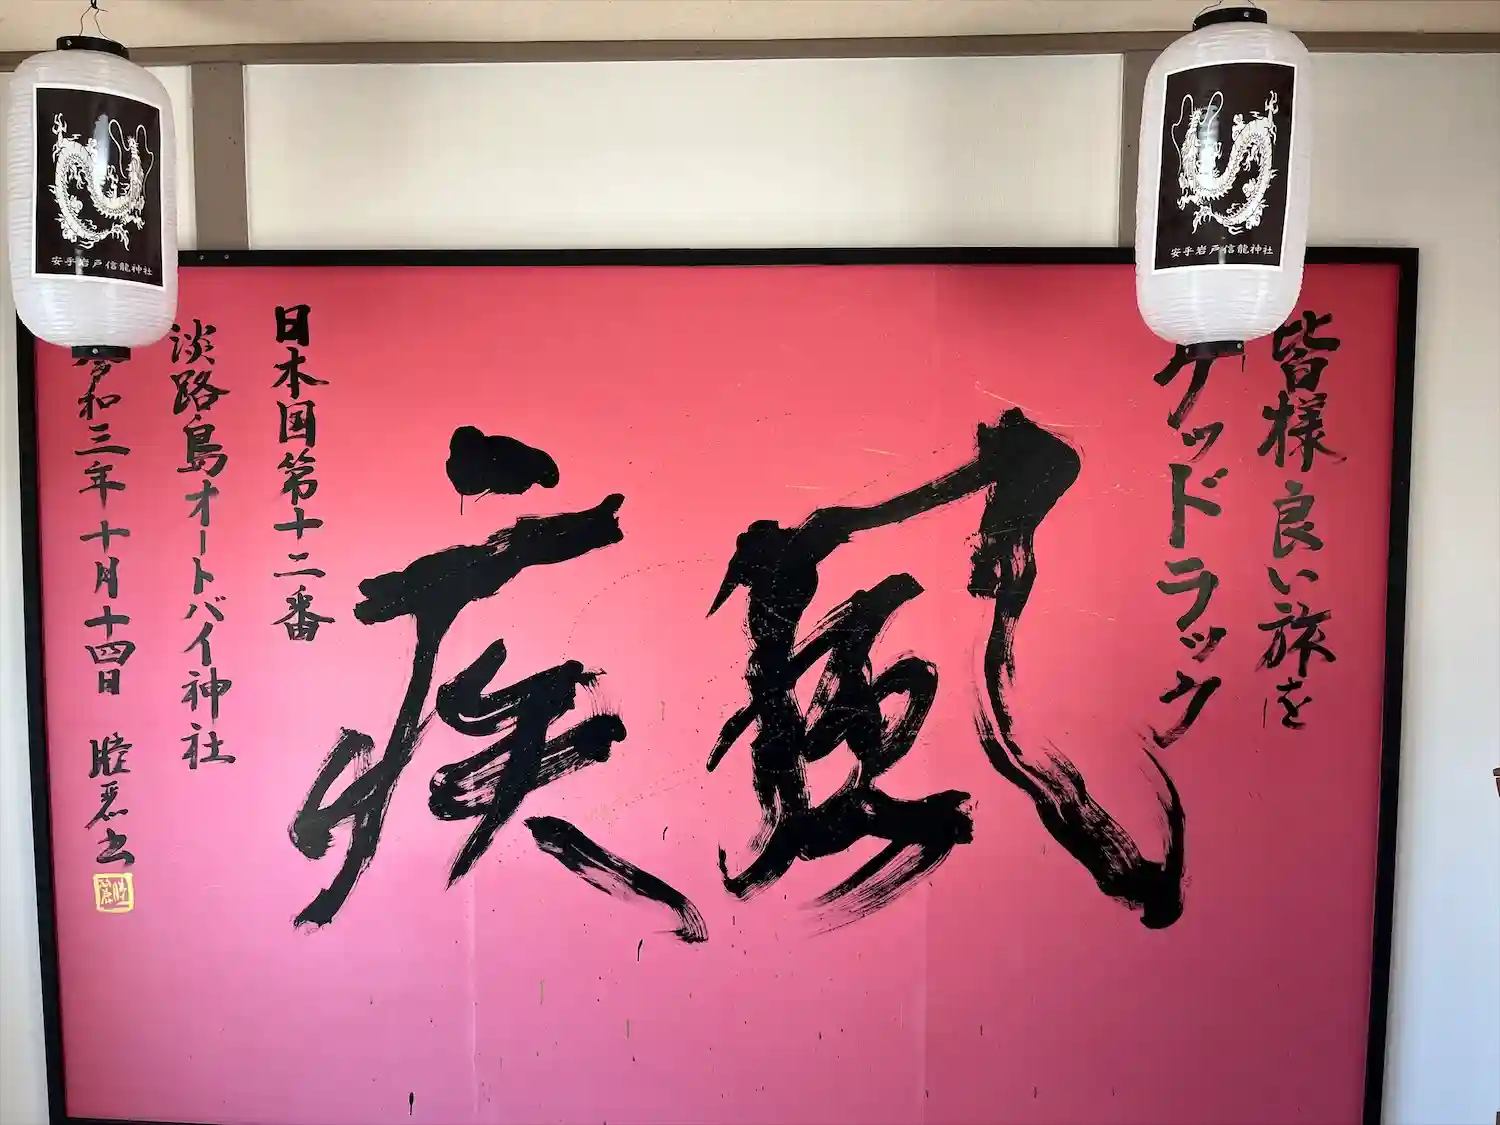 安乎岩戸信龍神社
安乎岩戸信龍神社
皆様良い旅を
グッドラック
風疾
日本国第十二番
淡路島オートバイ神社
令和三年十月十四日